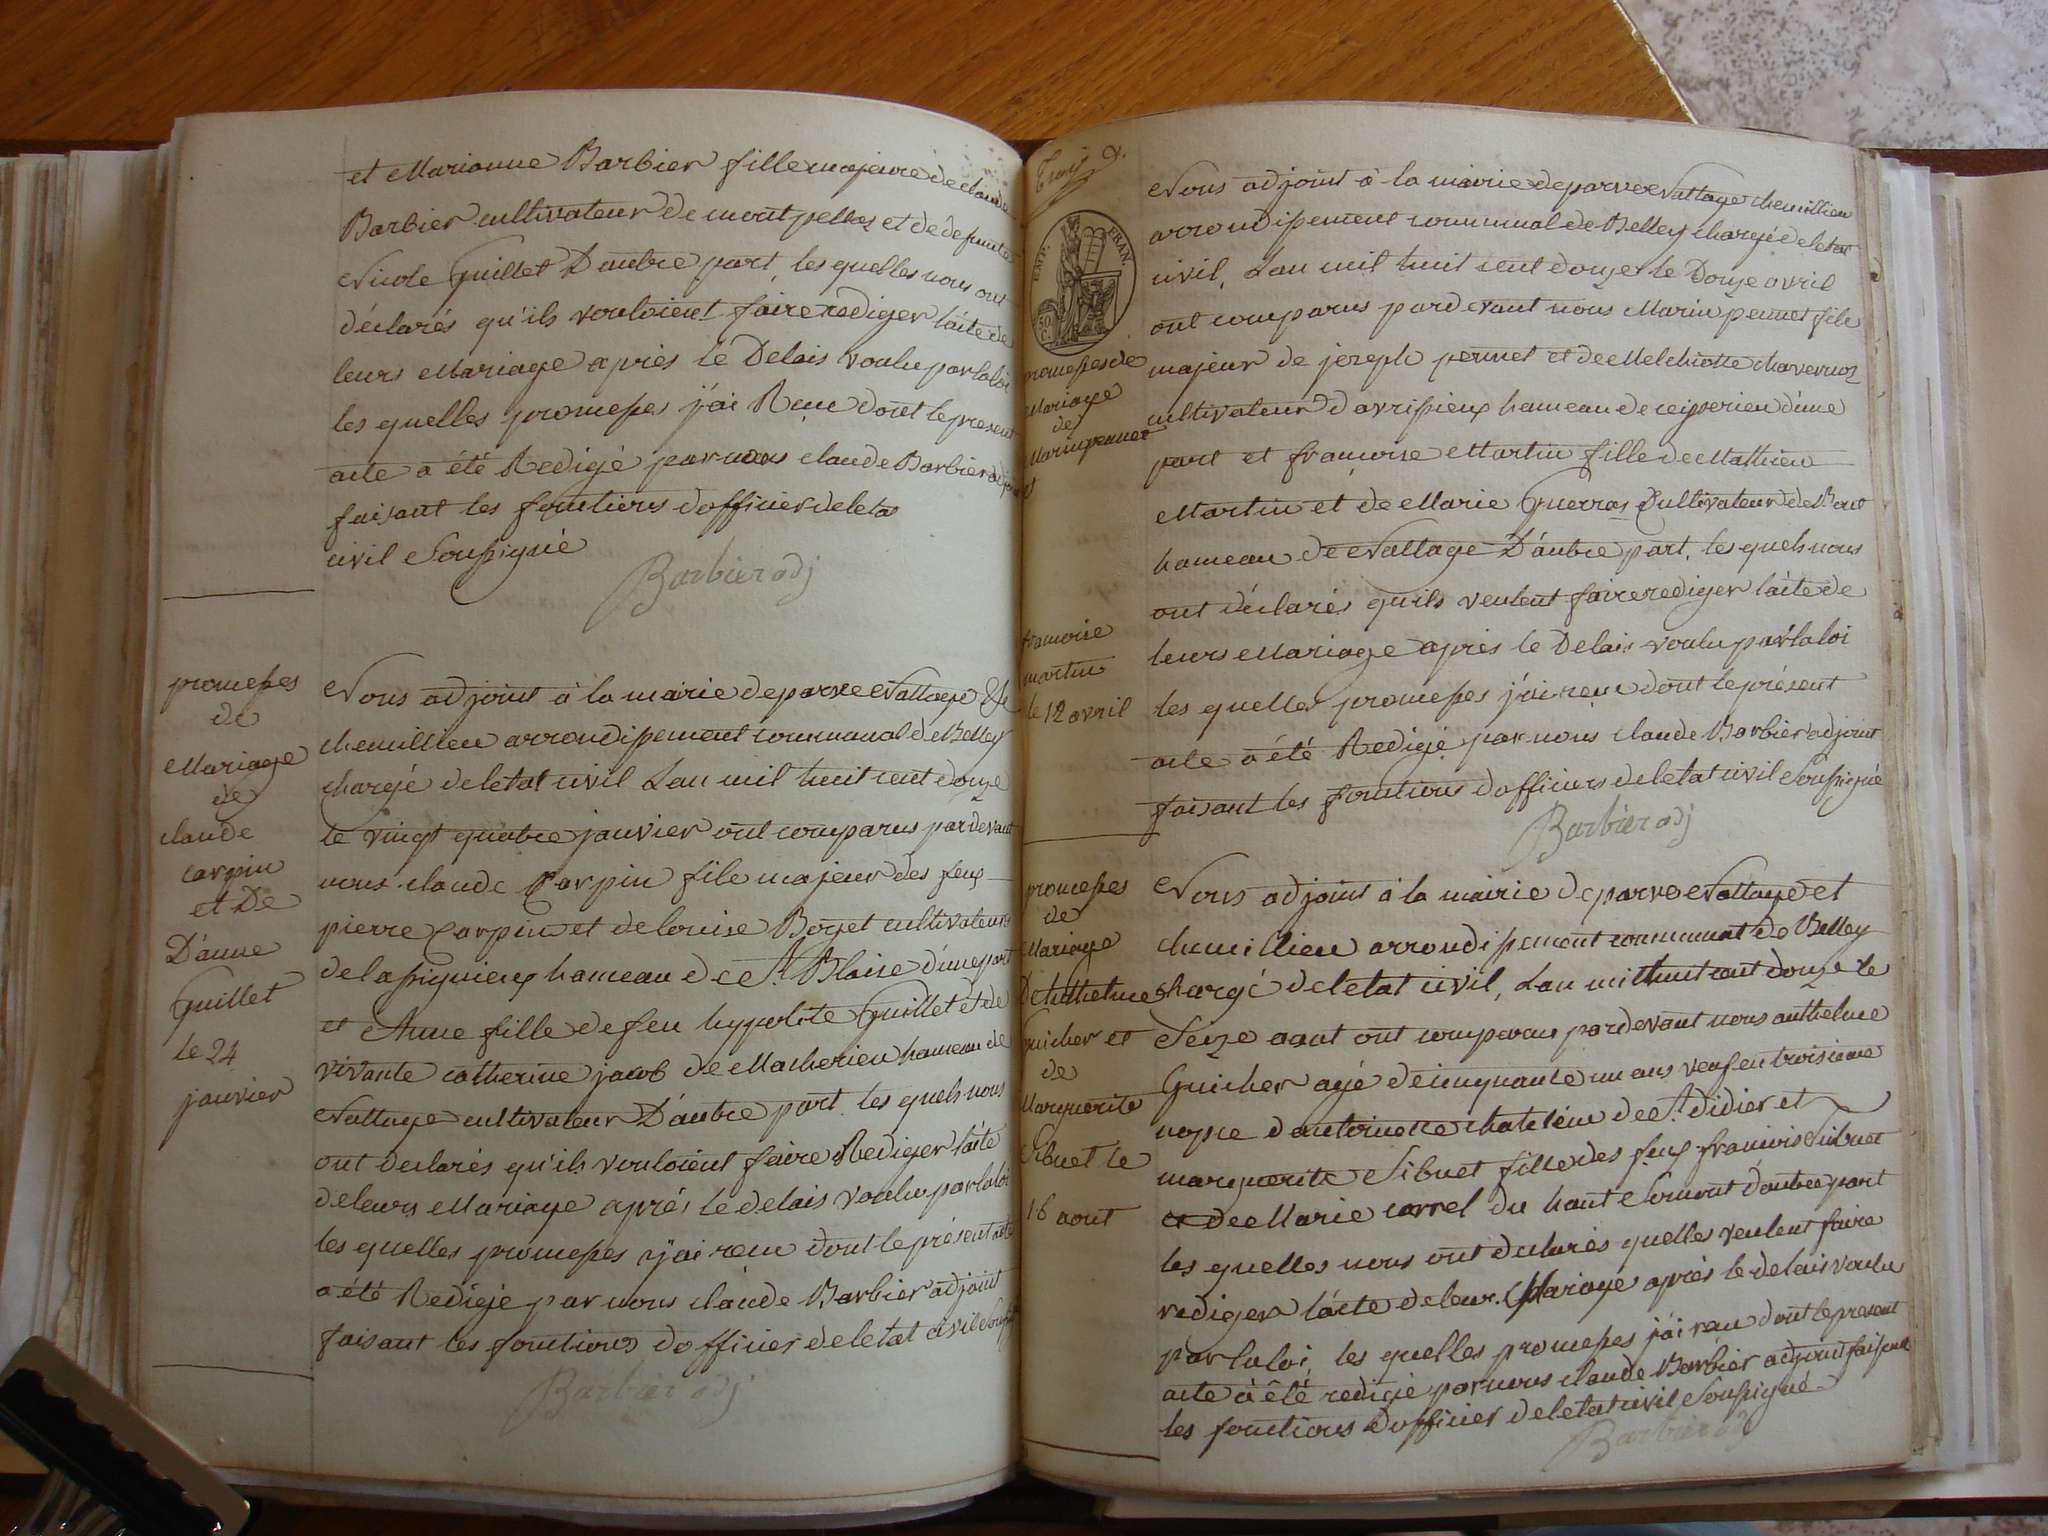 et Marianne Barbier fille majeure de claude
Barbier cultivateur de montpellaz et de defunte
Nicole Guillet D'autre part, les quelles nous ont
déclarés qu'ils vouloient faire rediger l'acte de
leurs Mariage après le Delais voulu par la loi
les quelles promesses j'ai Recue dont le present
acte a été Redigé par nous claude Barbier adjoint
faisant les fonctions d'officier de leta
civil Soussigné
Barbier adj
promesses
de
Mariage
de
claude
carpin
et De
D'anne
Guillet
le 24
janvier
Nous adjoint à la mairie de parve Nattage &
chemillieu arrondissement communal de Belley
chargé de letat civil Lan mil huit cent douze
le vingt quatre janvier ont comparus pardevant
nous claude Carpin fils majeur des feus
pierre Carpin et de louise Boget cultivateurs
de lassignieux hameau de St. Blaise d'une part
et Anne fille de feu hypolite Guillet et de
vivante catherine jacob de Macherieu hameau de
Nattage cultivateur D'autre part. les quels nous
ont declarés qu'ils vouloient faire Rediger l'acte
de leurs Mariage après le delais voulu par la loi
les quelles promesses j'ai recue dont le présent acte
a été Redigé par nous claude Barbier adjoint
faisant les fonctions d'officier de letat civil
Barbier adj
EMP. FRAN.
promesses de
Mariage
de
Marin pennet
et
francoise
martin
le 12 avril
Nous adjoint à la mairie de parve Nattage chemillieu
arrondissement communal de Belley chargé de letat
civil, Lan mil huit cent douze le Douze avril
ont comparus pardevant nous Marin pennet fils
majeur de joseph pennet et de Melchiotte chavernoz
cultivateur d'avrissieux hameau de ceisserieu d'une
part et françoise Martin fille de Mathieu
Martin et de Marie Guerras Cultivateur de
hameau de Nattage D'autre part, les quels nous
ont déclarés qu'ils veulent faire rediger l'acte de
leurs Mariage après le Delais voulu par la loi
les quelles promesses j'ai recue dont le présent
acte a été Redigé par nous claude Barbier adjoint
faisant les fonctions d'officiers de letat civil Soussigné
Barbier adj
promesses
de
Mariage
D'Anthelme
Guicher et
de
Marguerite
Sibuet le
16 aout
Nous adjoint à la mairie de parve Nattage et
chemillieu arrondissement communal de Belley
chargé de letat civil, Lan mil huit cent douze le
Seize aout ont comparau pardevant nous anthelme
Guicher agé de cinquante un ans veuf en troisieme
nopce d'antoinette de St. didier et
marguerite Sibuet fille des feus francois Sibuet
et de Marie carrel du haut Somont d'autre part
les quelles nous ont declarés quelles veulent faire
rediger l'acte de leur. Mariage après le delais voulu
par la loi, les quelles promesses j'ai recu dont le present
acte a été redigé par nous claude Barbier adjoint faisant
les fonctions D'officier de letat civil Soussigné.
Barbier adj